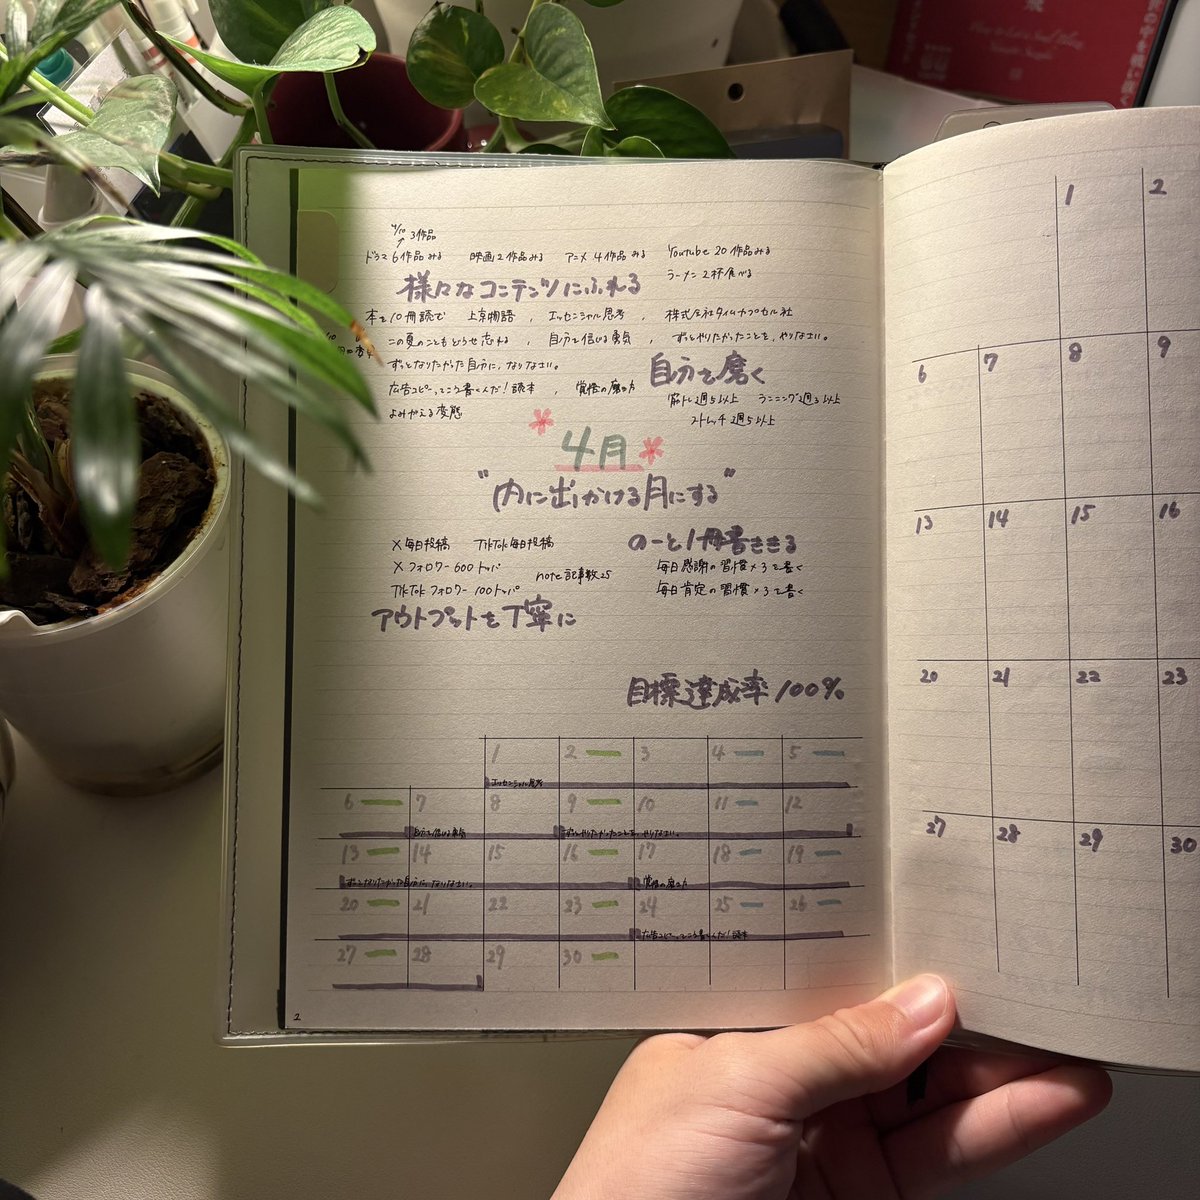 4/10
3作品
ドラマ6作品みる 映画2作品みる アニメ4作品みる Youtube 20作品みる
ラーメン2杯食べる
様々なコンテンツにふれる
本を10冊読む 上京物語 , エッセンシャル思考 , 株式会社タイムカプセル社
この夏のこともどうせ忘れる , 自分を信じる勇気 , ずっとやりたかったことを、やりなさい。
ずっとなりたかった自分に、なりなさい。
自分を磨く
広告コピーってこう書くんだ!読本 , 覚悟の磨き方
筋トレ週5以上 ランニング週3以上
よみがえる変態
ストレッチ週5以上
4月
"内に出かける月にする"
X毎日投稿 TikTok毎日投稿
のーと1冊書ききる
Xフォロワー600トッパ
毎日感謝の習慣×3を書く
note記事数25
TikTokフォロワー100トッパ
毎日肯定の習慣×3を書く
アウトプットを丁寧に
目標達成率100%
1 2 3 4 5
エッセンシャル思考
6 7 8 9 10 11 12
自分を信じる勇気 ずっとやりたかったことを、やりなさい。
13 14 15 16 17 18 19
ずっとなりたかった自分に、なりなさい。 覚悟の磨き方
20 21 22 23 24 25 26
広告コピーってこう書くんだ!読本
27 28 29 30
2
1 2
6 7 8 9
13 14 15 16
20 21 22 23
27 28 29 30